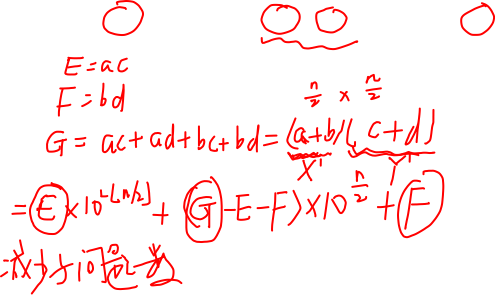 E=ac
F=bd
n/2 × n/2
G= ac+ad+bc+bd=(a+b)(c+d)
X' Y'
=E×10^2⌊n/2⌋+(G-E-F)×10^n/2+F
减少子问题